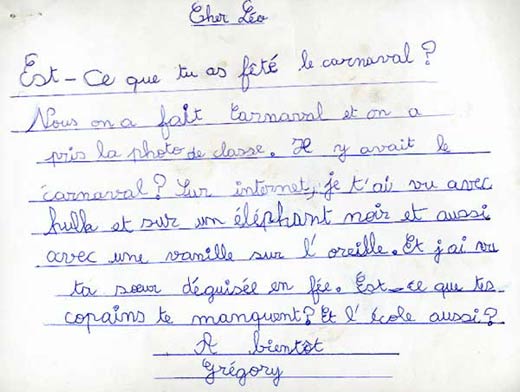 Cher Léo
Est-ce que tu as fêté le carnaval?
Nous on a fait Carnaval et on a
pris la photo de classe. Il y avait le
carnaval? Sur internet, je t'ai vu avec
hulk et sur un éléphant noir et aussi
avec une vanille sur l'oreille. Et j'ai vu
ta sœur déguisée en fée. Est-ce que tes
copains te manquent? Et l'école aussi?
A bientôt
Grégory